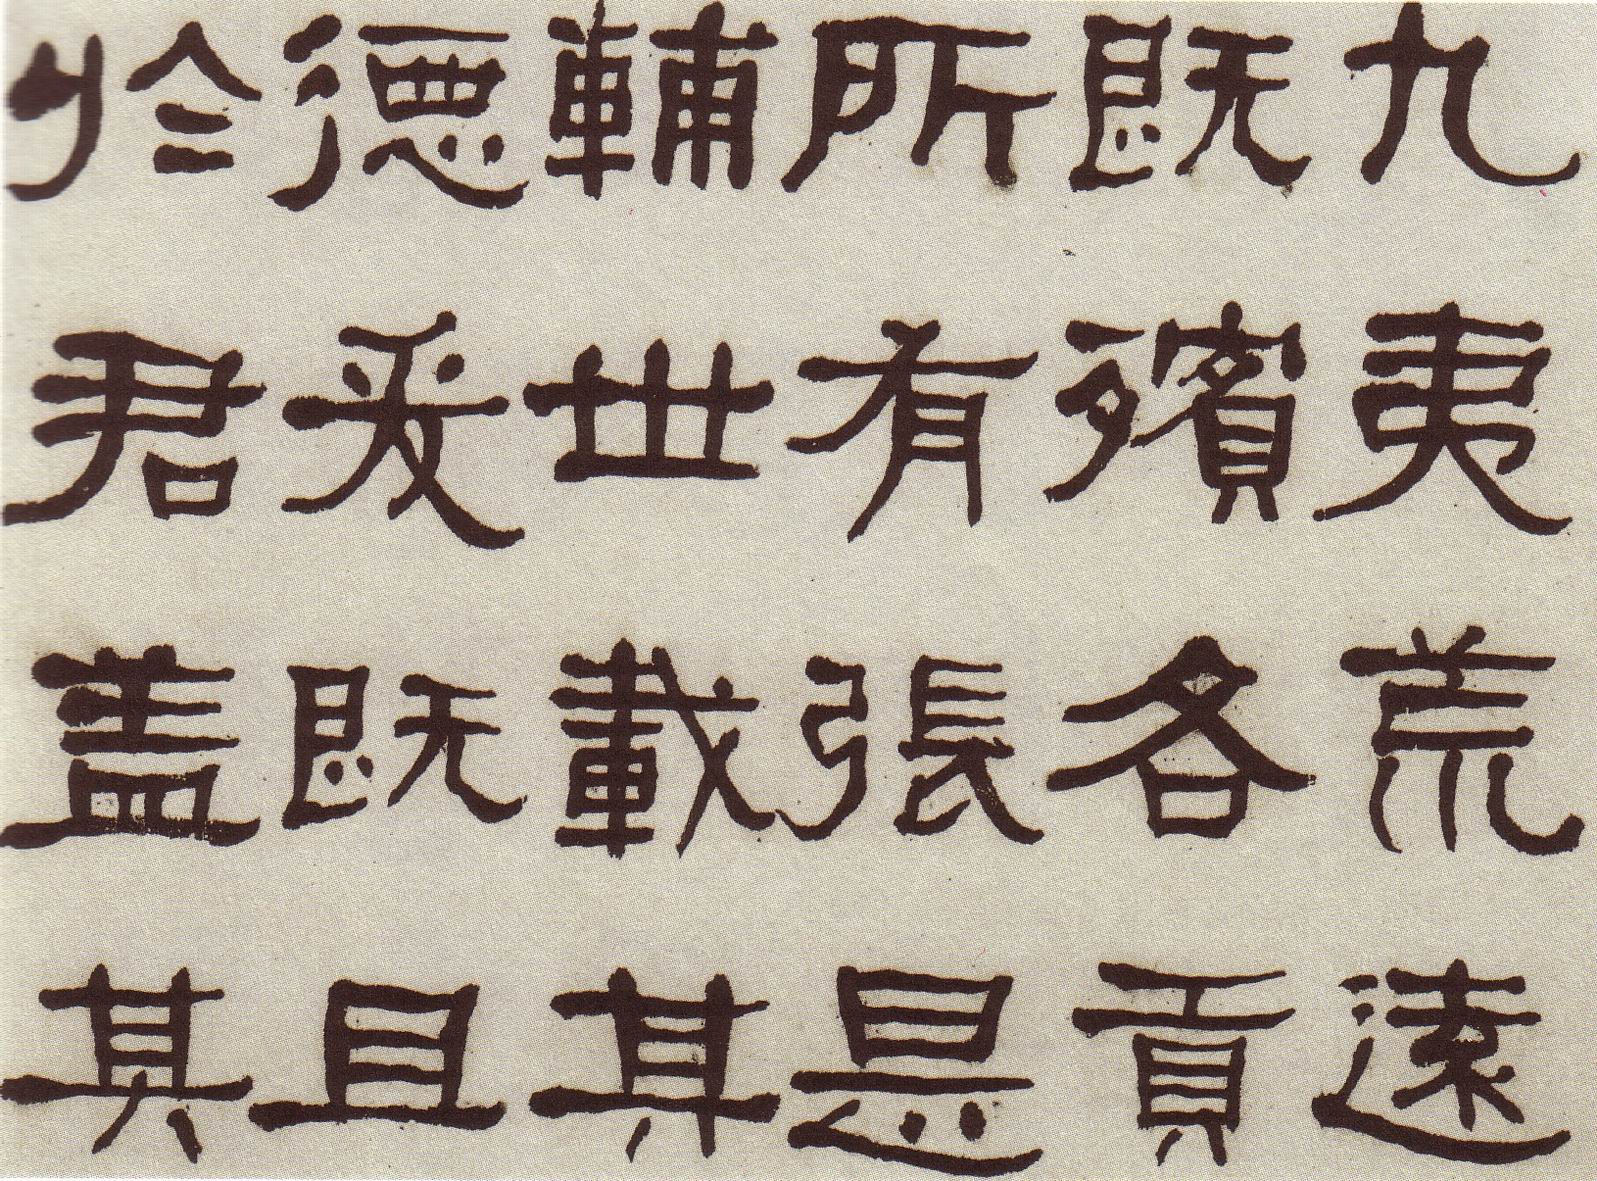 九夷荒遠
既殯各貢
所有張是
輔世載其
德爰既且
於君盖其